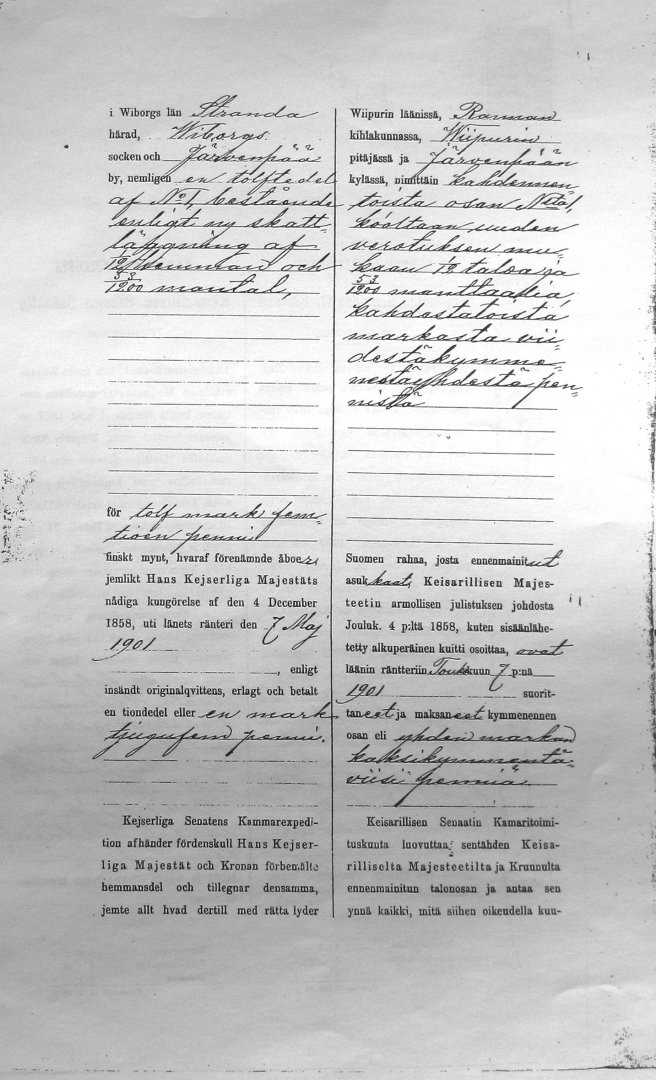 i Wiborgs län Stranda
härad, Wiborgs
socken och Järvenpää
by, nemligen en tolftedel
af No 1, bestående
enligt ny skatt-
läggning af
1/12 hemman och
53/1200 mantal,
för tolf mark fem-
tioen penni
finskt mynt, hvaraf förenämnde åboer
jemlikt Hans Kejserliga Majestäts
nådiga kungörelse af den 4 December
1858, uti länets ränteri den 7 Maj
1901
, enligt
insändt originalqvittens, erlagt och betalt
en tiondedel eller en mark
tjugufem penni.
Kejserliga Senatens Kammarexpedi-
tion afhänder fördenskull Hans Kejser-
liga Majestät och Kronan förbemälte
hemmansdel och tillegnar densamma,
jemte allt hvad dertill med rätta lyder
Wiipurin läänissä, Rannan
kihlakunnassa, Wiipurin
pitäjässä ja Järvenpään
kylässä, nimittäin kahdennen-
toista osan No 1stä,
kooltaan uuden
verotuksen mu-
kaan 1/12 taloa ja
53/1200 manttaalia,
kahdestatoista
markasta vii-
destäkymme-
nestäyhdestä pen-
nistä
Suomen rahaa, josta ennenmainitut
asukkaat, Keisarillisen Majes-
teetin armollisen julistuksen johdosta
Jouluk. 4 p:ltä 1858, kuten sisäänlähe-
tetty alkuperäinen kuitti osoittaa, ovat
läänin räntteriin Toukokuun 7 p:nä
1901 suorit-
taneet ja maksaneet kymmenennen
osan eli yhden markan
kaksikymmentä-
viisi penniä
Keisarillisen Senaatin Kamaritoimi-
tuskunta luovuttaa sentähden Keisa-
rilliselta Majesteetilta ja Kruunulta
ennenmainitun talonosan ja antaa sen
ynnä kaikki, mitä siihen oikeudella kuu-